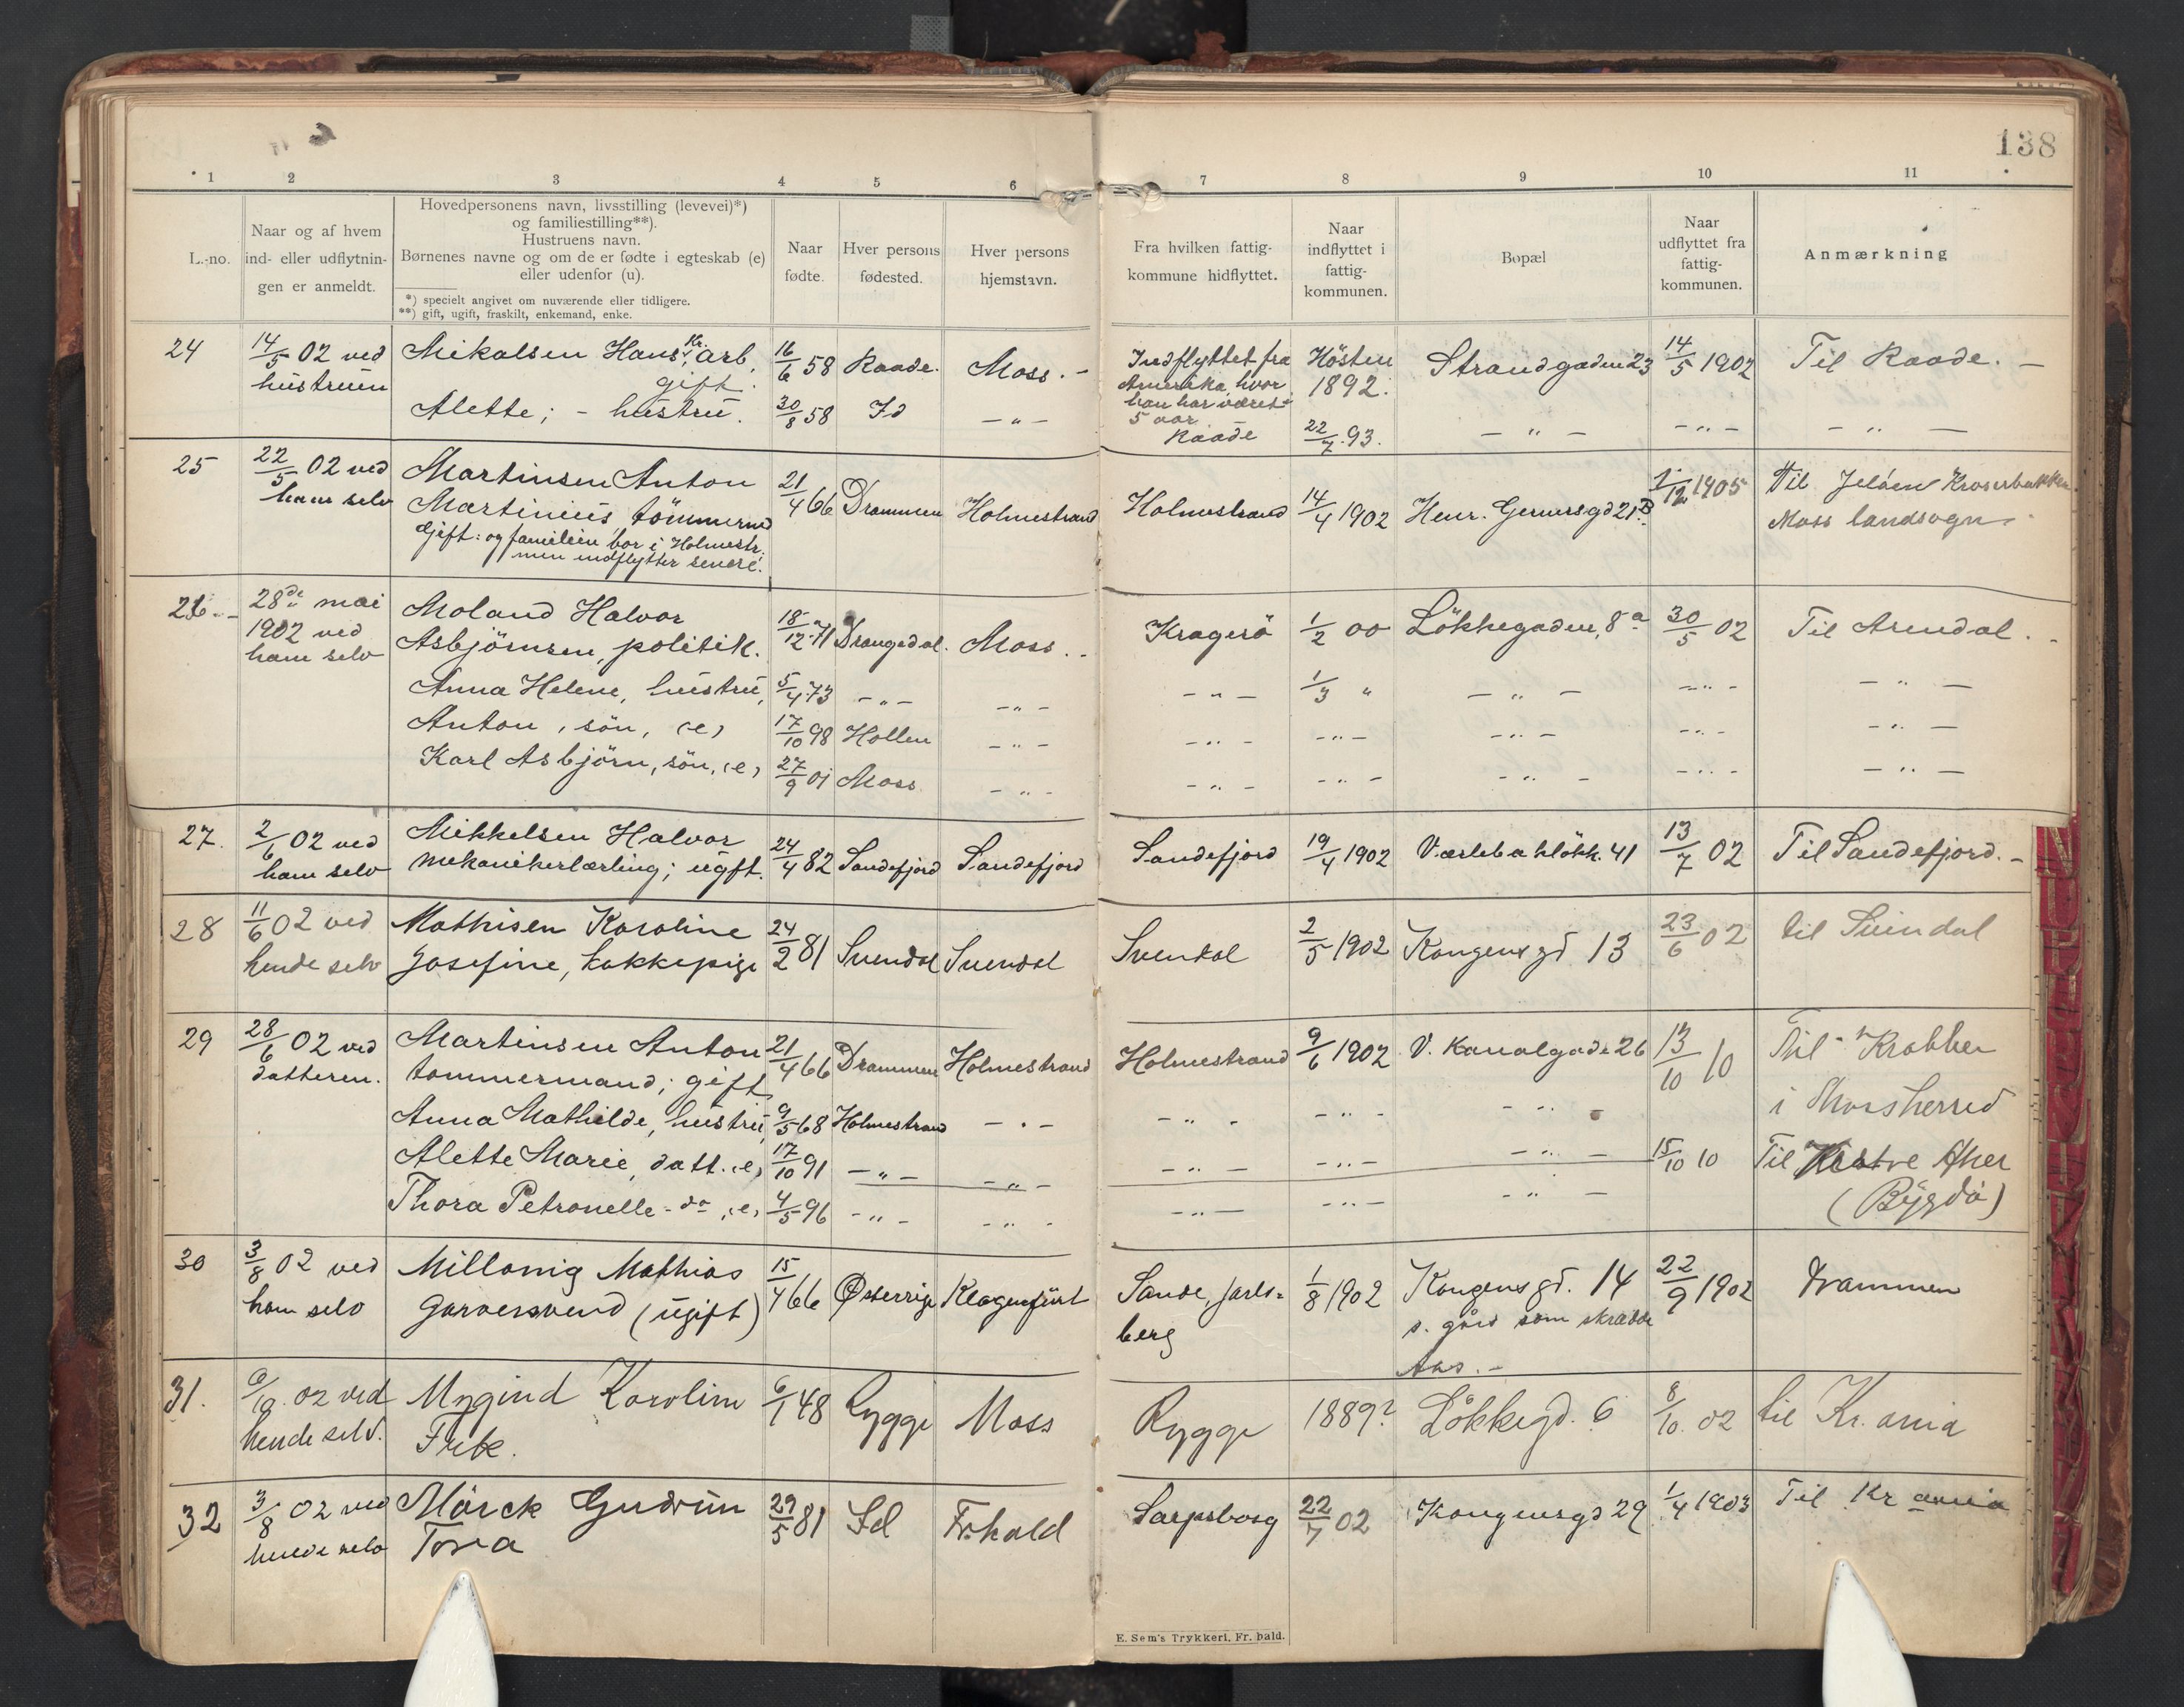 138
1 2 3 4 5 6 7 8 9 10 11
L.-no.
Naar og af hvem
ind- eller udflytnin-
gen er anmeldt.
Hovedpersonens navn, livsstilling (levevei)*)
og familiestilling**).
Hustruens navn.
Børnenes navne og om de er fødte i egteskab (e)
eller udenfor (u).
*) specielt angivet om nuværende eller tidligere.
**) gift, ugift, fraskilt, enkemand, enke.
Naar
fødte.
Hver persons
fødested.
Hver persons
hjemstavn.
Fra hvilken fattig-
kommune hidflyttet.
Naar
indflyttet i
fattig-
kommunen.
Bopæl
Naar
udflyttet fra
fattig-
kommunen.
Anmærkning
24
14/5 02 ved
hustruen
Mikalsen Hans Kr. arb.
gift.
16/6 58 Raade. Moss. -
Indflyttet fra
Amerika, hvor
han har været
5 aar
Høsten
1892.
Strandgaden 23 14/5 1902 Til Raade. -
Alette; - hustru. 30/8 58 Id - " - Raade 22/7 93. - " - - " - - " -
25
22/5 02 ved
ham selv
Martinsen Anton
Martinius, tömmerm
Gift: og familien bor i Holmestr.
men indflytter senere.
21/4 66 Drammen Holmestrand Holmestrand 14/4 1902 Henr. Gernersgd 21B 1/12 1905
Til Jeløen Kroserbakken
Moss landsogn.
26
28de mai
1902 ved
ham selv
Moland Halvor
Asbjörnsen, politik.
18/12 71 Drangedal. Moss. Kragerö 1/2 00 Lökkegaden, 8a 30/5 02 Til Arendal.
Anna Helene, hustru, 5/4 73 - " - - " - - " - 1/3 " - " - - " - - " -
Anton, sön, (e) 17/10 98 Hollen - " - - " - - " - - " - - " - - " -
Karl Asbjörn, sön, (e) 27/9 01 Moss - " - - " - - " - - " - - " - - " -
27.
2/6 02 ved
ham selv
Mikkelsen Halvor
mekanikerlærling; ugft.
24/4 82 Sandefjord Sandefjord Sandefjord 19/4 1902 Værlebaklökk. 41 13/7 02 Til Sandefjord. -
28
11/6 02 ved
hende selv
Mathisen Karoline
Josefine, kokkepige
24/2 81 Svendal Svendal Svendal 2/5 1902 Kongens gd 13 23/6 02 til Svindal
29
28/6 02 ved
datteren.
Martinsen Anton
tommermand; gift
21/4 66 Drammen Holmestrand Holmestrand 9/6 1902 V. Kanalgade 26 13/10 10
Til Krabber
i Thorsherred
Anna Mathilde, hustru, 9/5 68 Holmestrand - " - - " - - " - - " -
Alette Marie, datt. (e) 17/10 91 - " - - " - - " - - " - - " - 15/10 10 Til Vestre Aker
(Bygdö)
Thora Petronelle - do (e) 4/5 96 - " - - " - - " - - " - - " -
30
3/8 02 ved
ham selv
Millonig Mathias
Garversvend (ugift)
15/4 66 Østerrige Klagenfürt
Sande, Jarls-
berg
1/8 1902
Kongens gd. 14
s. gård som skrædder
Aas. -
22/9 1902 Drammen
31.
6/10. 02 ved
hende selv.
Mygind Karoline
Frk.
6/1 48 Rygge Moss Rygge 1889? Lökkegd. 6 8/10. 02 til Kr.ania
32
3/8 02 ved
hende selv
Mörck Gudrun
Tora
29/5 81 Id Fr.hald Sarpsborg 22/7 02 Kongensgd 29 1/4 1903 Til Kr ania
E. Sem's Trykkeri, Fr.hald.